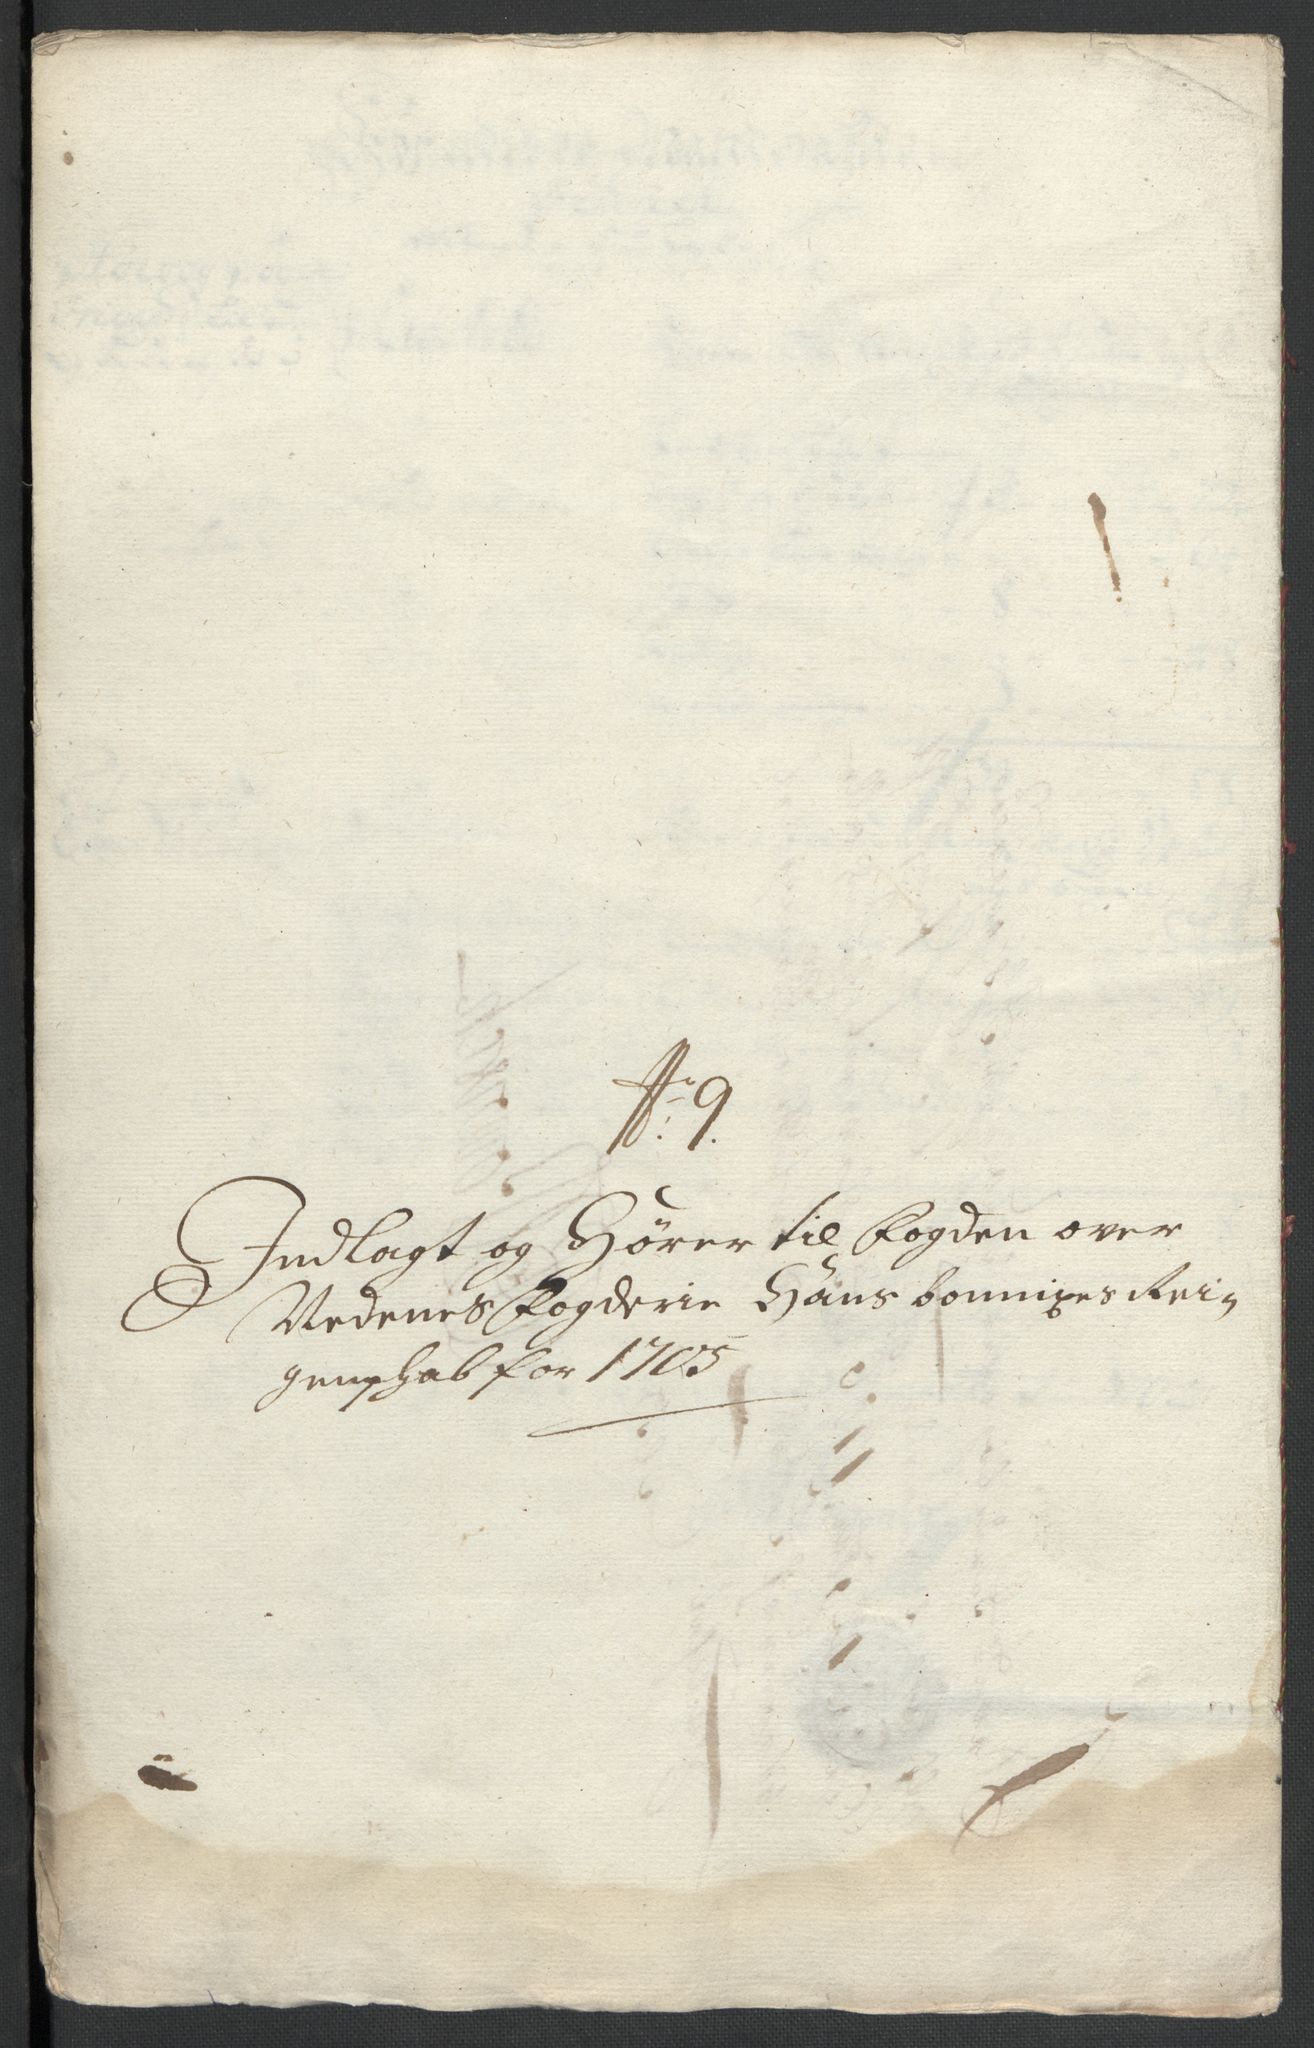 No 9.
Indlagt og Hører til fogden over
Nedenes fogderie Hans bonnixes Rei,,
genschab for 1705